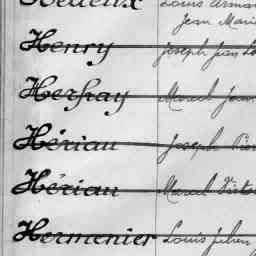 Louis
Jean Marie
Henry Joseph Jean
Herfray Marcel Jean
Hériau Joseph
Hériau Marcel
Hermenier Louis Julien